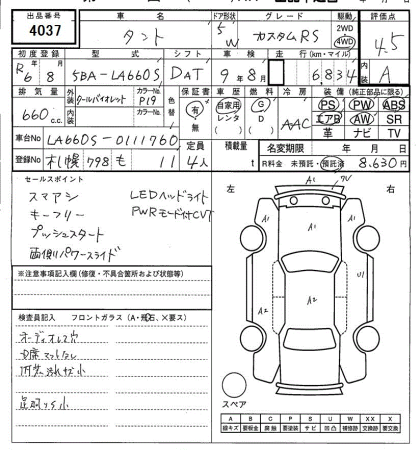 出品番号 車名 ドア形状 グレード 駆動 評価点
4037 タント 5W カスタムRS 2WD 4WD 4.5
初度登録 型式 シフト 車検 走行 (km・マイル) 内装
R6 8 5BA-LA660S DAT 9年8月 6,834 A
排気量 外装 カラーNo. 色替 保証書 車歴 燃料 冷房 装備(純正部品に限る)
660 c.c. クールバイオレット P19 有・無 自家用 レンタ G D AAC PS PW ABS
内装 カラーNo. エアB AW SR
革 ナビ TV
車台No LA660S-0111760 定員 積載量 名変期限 年 月 日
登録No 札幌 798 も 11 4人 t R料金 未預託・預託済 8,630円
セールスポイント
スマアシ LEDヘッドライト
キーフリー PWRモード付CVT
プッシュスタート
両側パワースライド
左 右
A1
A1
A1
A2
A2
U1
※注意事項記入欄(修復・不具合箇所および状態等)
検査員記入 フロントガラス(A・飛石、×要ス)
オーディオレス穴
内装汚れ小
スペア
A B C P S U W X XX X
線キズ 要板金 腐食 要塗装 サビ 凹 補修跡 交換跡 要交換